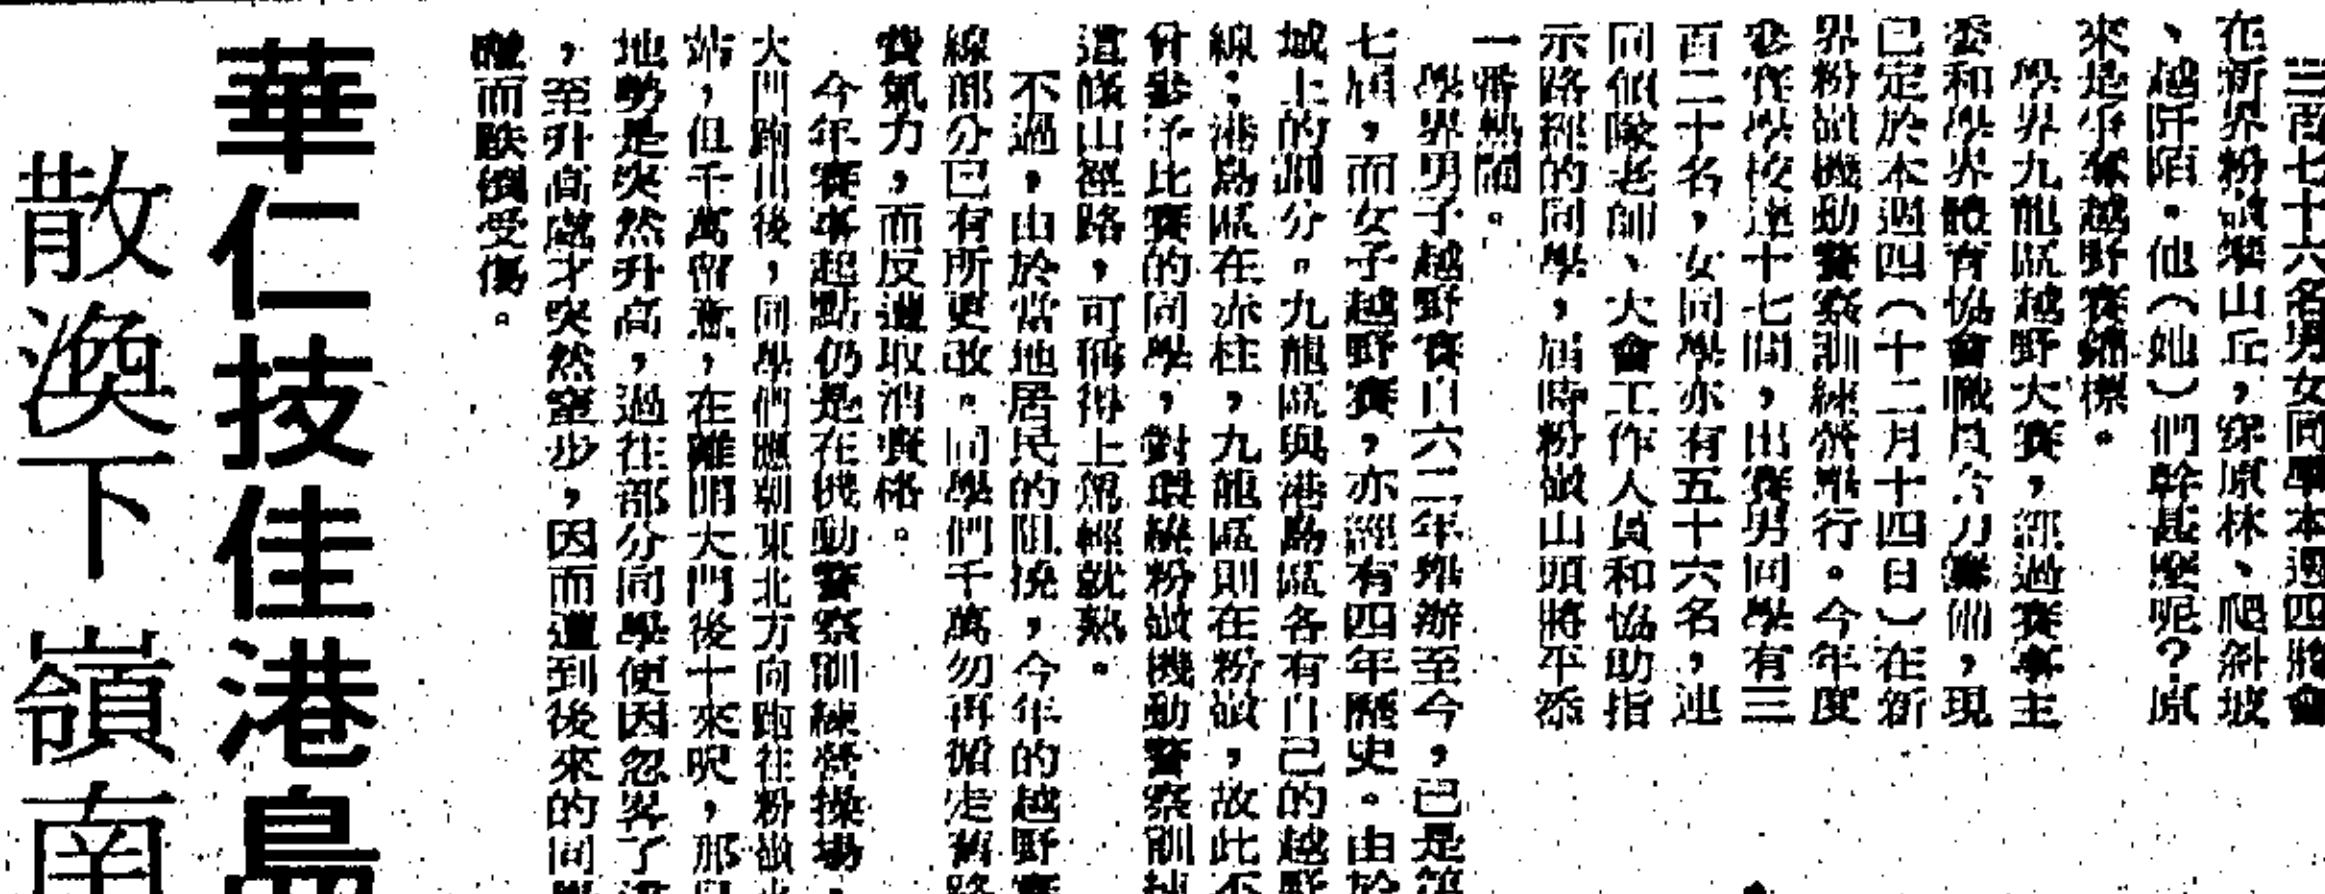 三百七十六名男女同學本週四將會
在新界粉嶺攀山丘，穿原林、爬斜坡
、越阡陌。他（她）們幹甚麼呢？原
來是爭奪越野賽錦標。
學界九龍區越野大賽，經過賽事主
委和學界體育協會職員合力籌備，現
已定於本週四（十二月十四日）在新
界粉嶺機動警察訓練營舉行。今年度
參賽學校達十七間，出賽男同學有三
百二十名，女同學亦有五十六名，連
同領隊老師、大會工作人員和協助指
示路經的同學，屆時粉嶺山頭將平添
一番熱鬧。
學界男子越野賽自六二年舉辦至今，已是第
七屆，而女子越野賽，亦經有四年歷史。由於
域上的劃分。九龍區與港島區各有自己的越野
線；港島區在赤柱，九龍區則在粉嶺，故此不
曾參予比賽的同學，對環繞粉嶺機動警察訓練
這條山徑路，可稱得上駕輕就熟。
不過，由於當地居民的阻撓，今年的越野賽
線部分已有所更改。同學們千萬勿再循走舊路
費氣力，而反遭取消資格。
今年賽事起點仍是在機動警察訓練營操場，
大門跑出後，同學們應朝東北方向跑往粉嶺火
站，但千萬留意，在離開大門後十來呎，那
地勢是突然升高，過往部分同學便因忽畧了
，至升高處才突然窒步，因而遭到後來的同
碰而跌倒受傷。
華仁技佳港島
散渙下嶺南